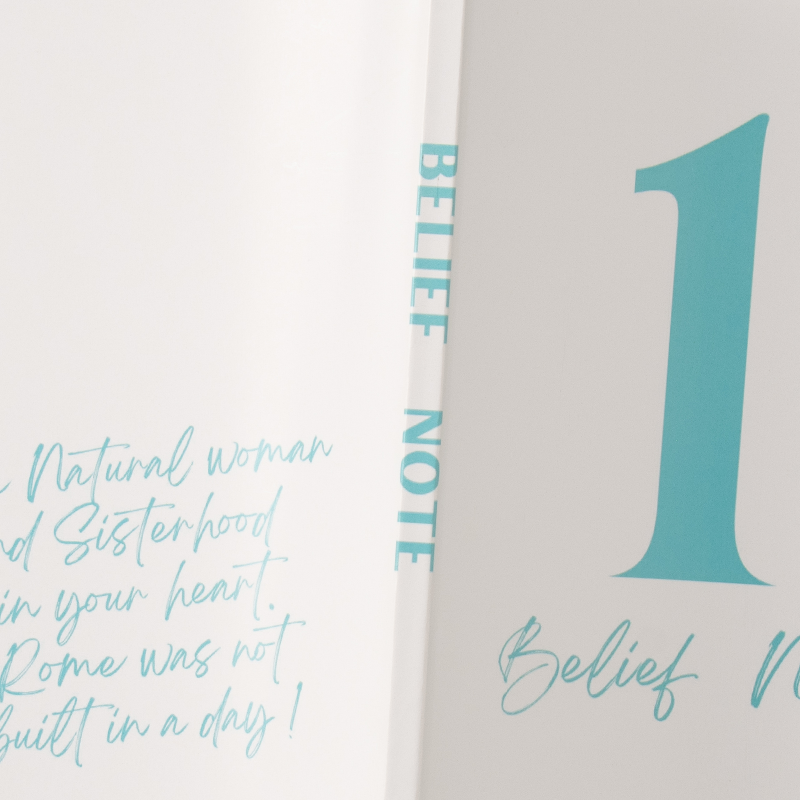 Natural woman
Sisterhood
in your heart.
Rome was not
built in a day!
BELIEF NOTE
1
Belief